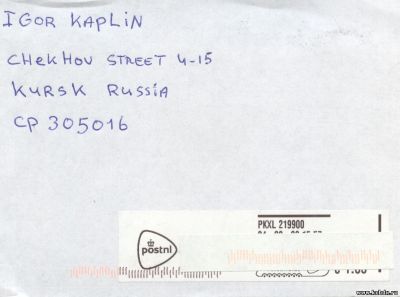 IGOR KAPLIN
CHEKHOV STREET 4-15
KURSK RUSSIA
CP 305016
postnl
PKXL 219900